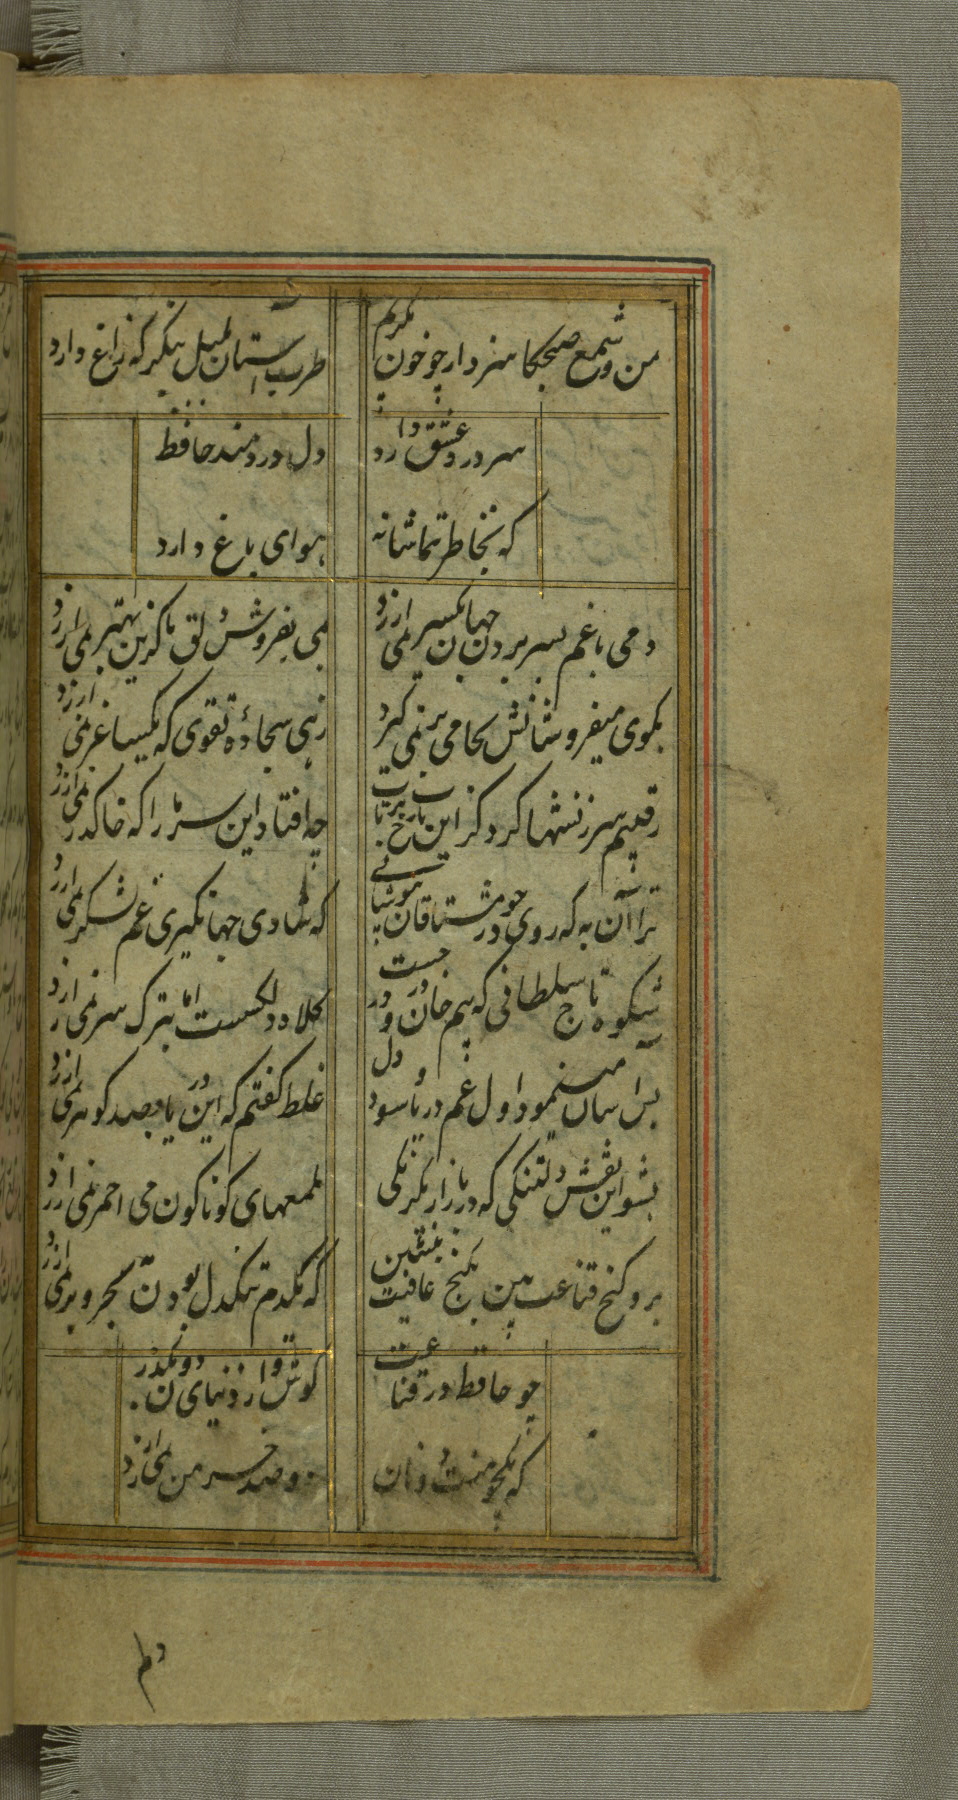 من و شمع صبحگاهی سزد ار چو خون بگریم
طرب آشیان بلبل بنگر که زاغ دارد
سر درد عشق دارد
دل دردمند حافظ
که نه خاطر تماشا نه
هوای باغ دارد
دمی با غم بسر بردن جهان یکسر نمی ارزد
بمی بفروش دلق ما کزین بهتر نمی ارزد
بکوی میفروشانش بجامی بر نمی گیرد
زهی سجاده تقوی که یکساغر نمی ارزد
رقیبم سرزنشها کرد کز این باب رخ برتاب
چه افتاد این سر ما را که خاک در نمی ارزد
ترا آن به که روی خود ز مشتاقان بپوشانی
که شادی جهانگیری غم لشکر نمی ارزد
شکوه تاج سلطانی که بیم جان درو درجست
کلاه دلکشست اما بترک سر نمی ارزد
بس آسان مینمود اول غم دریا سود
غلط گفتم که این دریا بصد گوهر نمی ارزد
بشو این نقش دلتنگی که در بازار یکرنگی
ملمعهای گوناگون می احمر نمی ارزد
برو گنج قناعت بین بکنج عافیت بنشین
که یکدم تنگدل بودن بحر و بر نمی ارزد
چو حافظ در قناعت
کوش و از دنیای دون بگذر
که یکجو منت دونان
دو صد من زر نمی ارزد